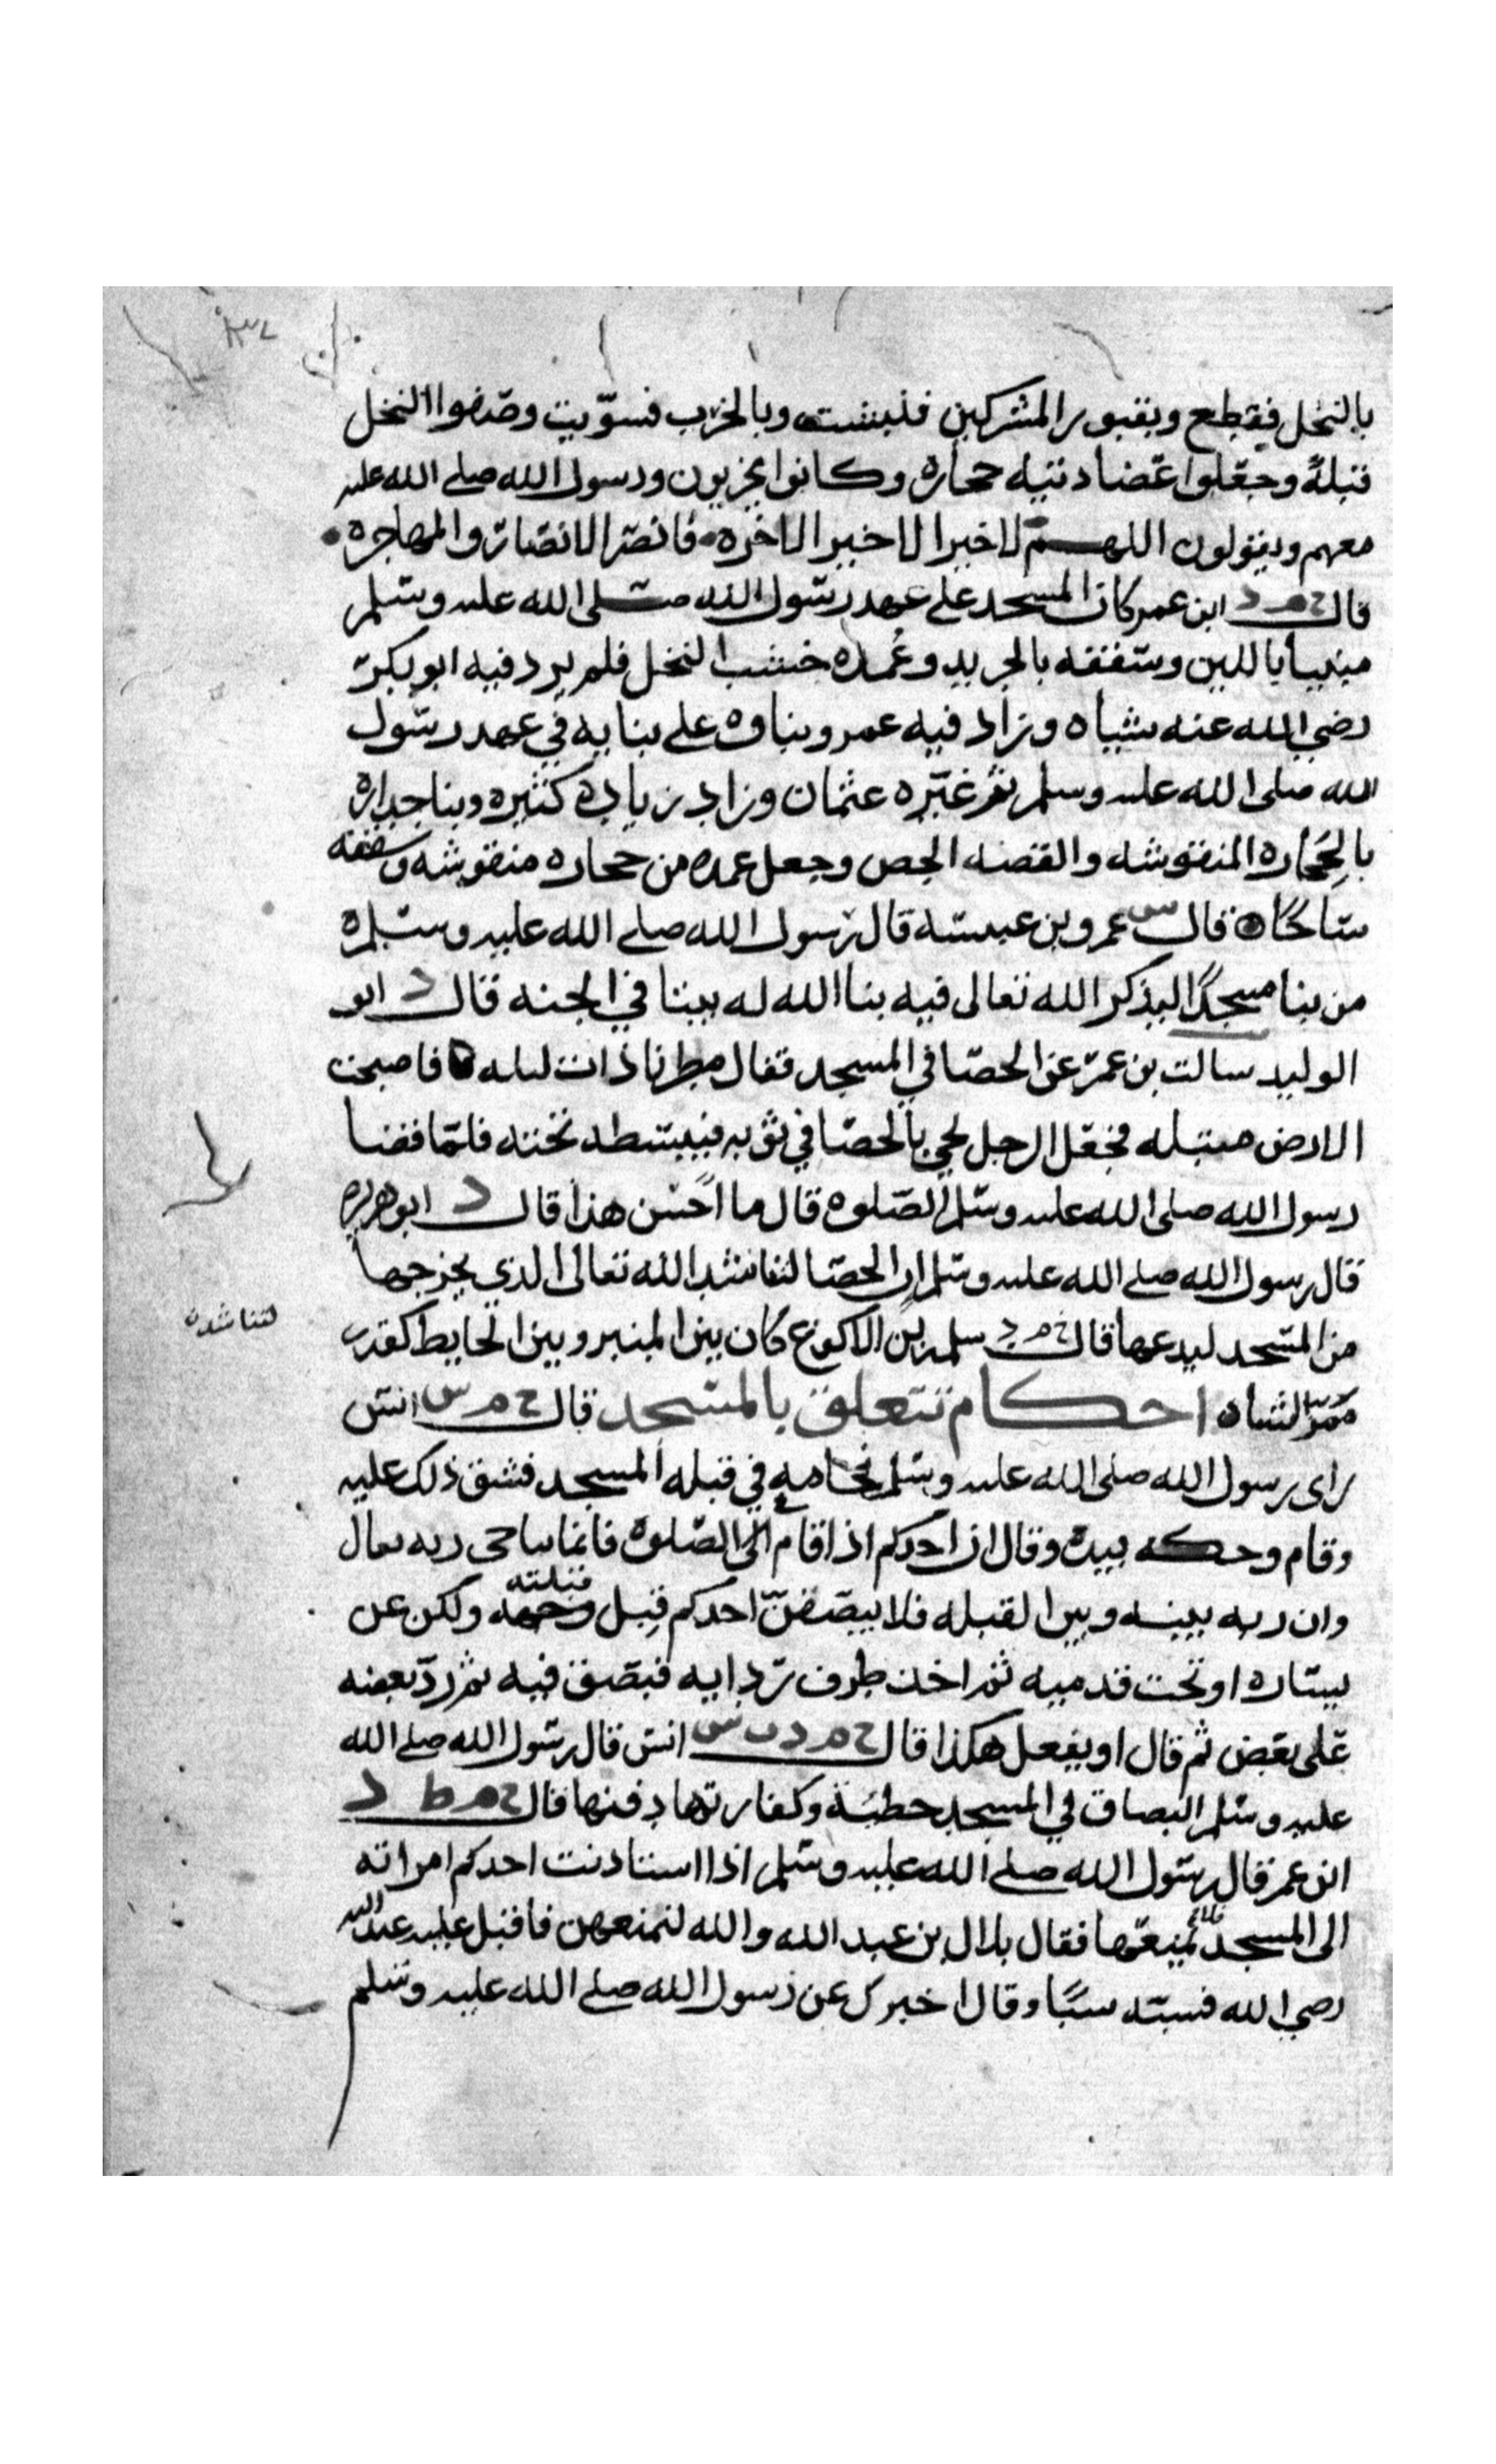 بالنخل فقطع وبقبور المشركين فنبشت وبالخرب فسوّيت وصفوا النخل
قبلةً وجعلوا عضادتيه حجاره وكانوا يرتجزون ورسول الله صلى الله عليه
معهم ويقولون اللهم لا خير الا خير الاخره فانصر الانصار والمهاجره
قال خ م د ابن عمر كان المسجد على عهد رسول الله صلى الله عليه وسلم
مبنيا باللبن وسقفه بالجريد وعُمده خشب النخل فلم يزد فيه ابو بكر
رضي الله عنه شيا ه وزاد فيه عمر وبناه على بنايه في عهد رسول
الله صلى الله عليه وسلم ثم غيّره عثمان وزاد زيادة كثيره وبنا جداره
بالحجاره المنقوشه والقصه الجص وجعل عمده من حجاره منقوشه وسقفه
ساجًا ه قال س عمرو بن عبسه قال رسول الله صلى الله عليه وسلم
من بنا مسجدًا ليذكر الله تعالى فيه بنا الله له بيتا في الجنه قال د ابو
الوليد سالت بن عمر عن الحصا في المسجد فقال مطرنا ذات ليله فاصبحت
الارض مبتله فجعل الرجل يجي بالحصا في ثوبه فيبسطه تحته فلما قضا
رسول الله صلى الله عليه وسلم الصلوه قال ما احسن هذا قال د ابو هريره
قال رسول الله صلى الله عليه وسلم ان الحصا لتناشد الله تعالى الذي يخرجها
لتناشدن
من المسجد ليدعها قال خ م د سلمه بن الاكوع كان بين المنبر وبين الحايط كقدر
ممرّ الشاه احكام تتعلق بالمسجد قال خ م س انس
راى رسول الله صلى الله عليه وسلم نخامه في قبله المسجد فشق ذلك عليه
وقام وحكه بيده وقال ان احدكم اذا قام الى الصلوة فانما يناجي ربه تعالى
وان ربه بينه وبين القبله فلا يبصقنّ احدكم قِبل قبلته ولكن عن
يساره او تحت قدميه ثم اخذ طرف ردايه فبصق فيه ثم ردّ بعضه
على بعض ثم قال او يفعل هكذا قال خ م د ت س انس قال رسول الله صلى الله
عليه وسلم البصاق في المسجد خطيئة وكفارتها دفنها قال خ م ط د
ابن عمر قال رسول الله صلى الله عليه وسلم اذا استاذنت احدكم امراته
الى المسجد فلا يمنعها فقال بلال بن عبد الله والله لنمنعهن فاقبل عليه عبد الله
رضي الله فسبّه سبًا وقال اخبرك عن رسول الله صلى الله عليه وسلم